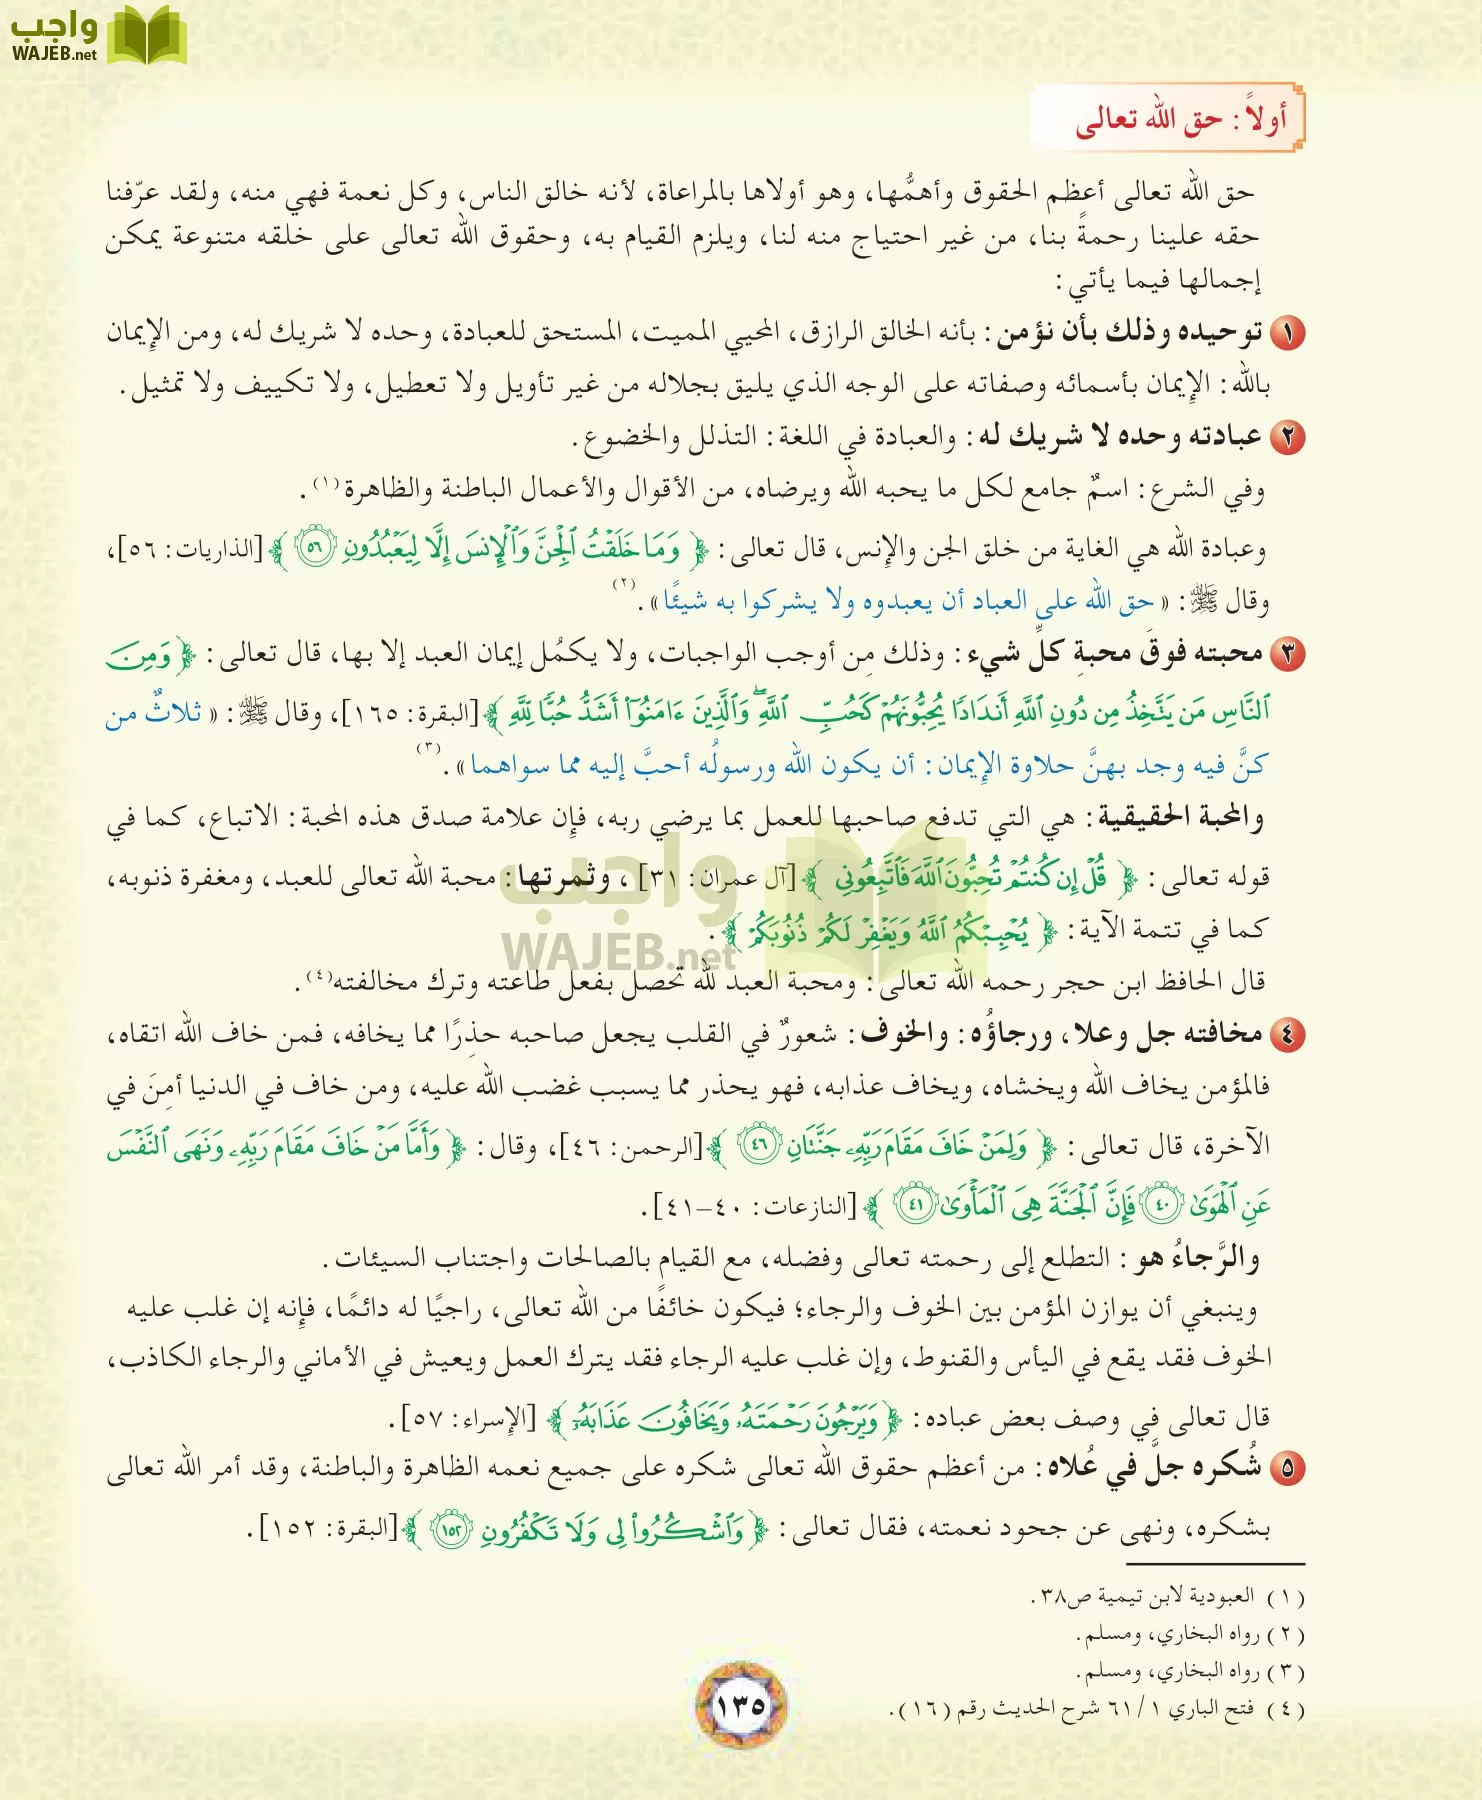 واجب
WAJEB.net
أولاً : حق الله تعالى
حق الله تعالى أعظم الحقوق وأهمُّها، وهو أولاها بالمراعاة، لأنه خالق الناس، وكل نعمة فهي منه، ولقد عرّفنا
حقه علينا رحمةً بنا، من غير احتياج منه لنا، ويلزم القيام به، وحقوق الله تعالى على خلقه متنوعة يمكن
إجمالها فيما يأتي :
١ توحيده وذلك بأن نؤمن : بأنه الخالق الرازق، المحيي المميت، المستحق للعبادة، وحده لا شريك له، ومن الإيمان
بالله : الإيمان بأسمائه وصفاته على الوجه الذي يليق بجلاله من غير تأويل ولا تعطيل، ولا تكييف ولا تمثيل .
٢ عبادته وحده لا شريك له : والعبادة في اللغة : التذلل والخضوع .
وفي الشرع : اسمٌ جامع لكل ما يحبه الله ويرضاه، من الأقوال والأعمال الباطنة والظاهرة (١) .
وعبادة الله هي الغاية من خلق الجن والإنس، قال تعالى : ﴿ وَمَا خَلَقْتُ ٱلْجِنَّ وَٱلْإِنسَ إِلَّا لِيَعْبُدُونِ ٥٦ ﴾ [الذاريات : ٥٦]،
وقال ﷺ : « حق الله على العباد أن يعبدوه ولا يشركوا به شيئًا » . (٢)
٣ محبته فوقَ محبةِ كلِّ شيء : وذلك مِن أوجب الواجبات، ولا يكمُل إيمان العبد إلا بها، قال تعالى : ﴿ وَمِنَ
ٱلنَّاسِ مَن يَتَّخِذُ مِن دُونِ ٱللَّهِ أَندَادًا يُحِبُّونَهُمْ كَحُبِّ ٱللَّهِ ۖ وَٱلَّذِينَ ءَامَنُوٓا۟ أَشَدُّ حُبًّا لِّلَّهِ ﴾ [البقرة : ١٦٥]، وقال ﷺ : « ثلاثٌ من
كنَّ فيه وجد بهنَّ حلاوة الإيمان : أن يكون الله ورسولُه أحبَّ إليه مما سواهما » . (٣)
والمحبة الحقيقية : هي التي تدفع صاحبها للعمل بما يرضي ربه، فإن علامة صدق هذه المحبة : الاتباع، كما في
قوله تعالى : ﴿ قُلْ إِن كُنتُمْ تُحِبُّونَ ٱللَّهَ فَٱتَّبِعُونِى ﴾ [آل عمران : ٣١] ، وثمرتها : محبة الله تعالى للعبد، ومغفرة ذنوبه،
كما في تتمة الآية : ﴿ يُحْبِبْكُمُ ٱللَّهُ وَيَغْفِرْ لَكُمْ ذُنُوبَكُمْ ﴾ .
قال الحافظ ابن حجر رحمه الله تعالى : ومحبة العبد لله تحصل بفعل طاعته وترك مخالفته (٤) .
واجب
WAJEB.net
٤ مخافته جل وعلا، ورجاؤُه : والخوف : شعورٌ في القلب يجعل صاحبه حذِرًا مما يخافه، فمن خاف الله اتقاه،
فالمؤمن يخاف الله ويخشاه، ويخاف عذابه، فهو يحذر مما يسبب غضب الله عليه، ومن خاف في الدنيا أمِنَ في
الآخرة، قال تعالى : ﴿ وَلِمَنْ خَافَ مَقَامَ رَبِّهِۦ جَنَّتَانِ ٤٦ ﴾ [الرحمن : ٤٦]، وقال : ﴿ وَأَمَّا مَنْ خَافَ مَقَامَ رَبِّهِۦ وَنَهَى ٱلنَّفْسَ
عَنِ ٱلْهَوَىٰ ٤٠ فَإِنَّ ٱلْجَنَّةَ هِىَ ٱلْمَأْوَىٰ ٤١ ﴾ [النازعات : ٤٠-٤١] .
والرَّجاءُ هو : التطلع إلى رحمته تعالى وفضله، مع القيام بالصالحات واجتناب السيئات .
وينبغي أن يوازن المؤمن بين الخوف والرجاء؛ فيكون خائفًا من الله تعالى، راجيًا له دائمًا، فإنه إن غلب عليه
الخوف فقد يقع في اليأس والقنوط، وإن غلب عليه الرجاء فقد يترك العمل ويعيش في الأماني والرجاء الكاذب،
قال تعالى في وصف بعض عباده : ﴿ وَيَرْجُونَ رَحْمَتَهُۥ وَيَخَافُونَ عَذَابَهُۥٓ ﴾ [الإسراء : ٥٧] .
٥ شُكره جلَّ في عُلاه : من أعظم حقوق الله تعالى شكره على جميع نعمه الظاهرة والباطنة، وقد أمر الله تعالى
بشكره، ونهى عن جحود نعمته، فقال تعالى : ﴿ وَٱشْكُرُوا۟ لِى وَلَا تَكْفُرُونِ ١٥٢ ﴾ [البقرة : ١٥٢] .
(١) العبودية لابن تيمية ص٣٨ .
(٢) رواه البخاري، ومسلم .
(٣) رواه البخاري، ومسلم .
(٤) فتح الباري ١/ ٦١ شرح الحديث رقم (١٦) .
١٣٥